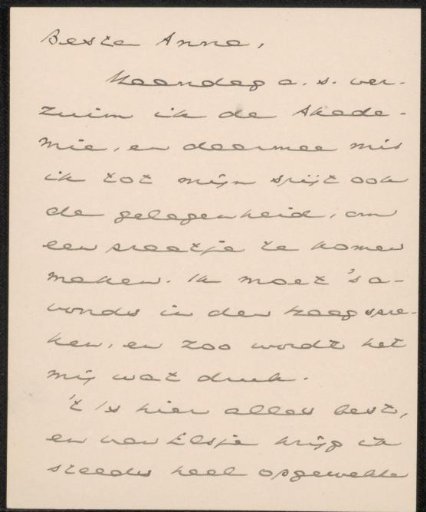 Beste Anna,
Maandag a.s. ver-
zuim ik de Akade-
mie, en daarmee mis
ik tot mijn spijt ook
de gelegenheid, om
een praatje te komen
maken. Ik moet 's a-
vonds in den Haag spre-
ken, en zoo wordt het
mij wat druk.
't Is hier alles best,
en van Elsje krijg ik
steeds heel opgewekte